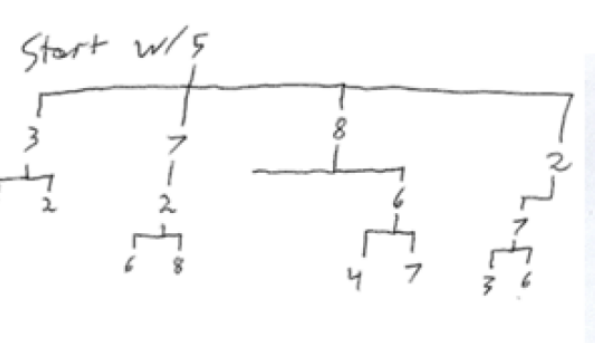 Start w/ 5
3 7 8 2
2 2 6 7
6 8 4 7 3 6